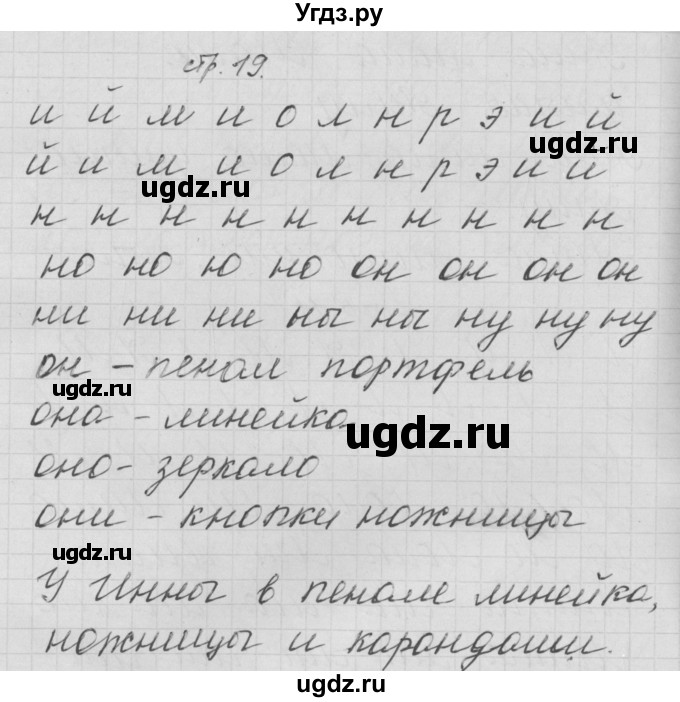 Угдз.ру
стр. 19.
и й м и о л н р э и й
й и м и о л н р э и и
н н н н н н н н н н
но но ю но он он он он
ни ни ни ны ны ну ну ну
он - пенал портфель
она - линейка
оно - зеркало
они - кнопки ножницы
У Инны в пенале линейка,
ножницы и карандаши.
ugdz.ru
ugdz.ru
ugdz.ru
ugdz.ru
ugdz.ru
ugdz.ru